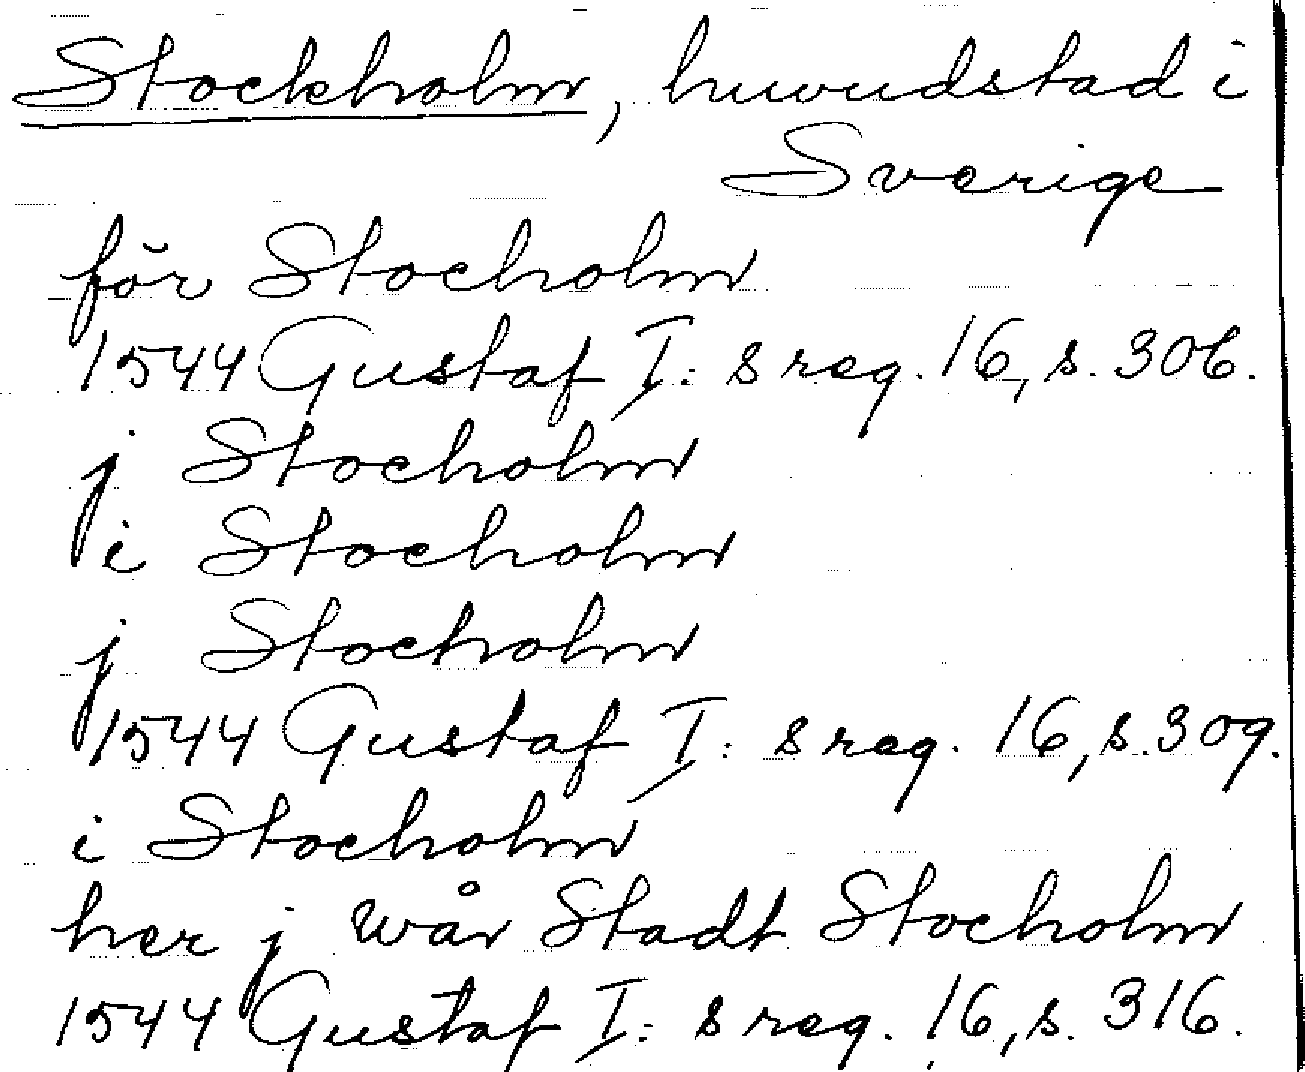 Stockholm, huvudstad i
Sverige
för Stocholm
1544 Gustaf I:s reg. 16, s. 306.
j Stocholm
i Stocholm
j Stocholm
1544 Gustaf I:s reg. 16, s. 309.
i Stocholm
her j wår Stadt Stocholm
1544 Gustaf I:s reg. 16, s. 316.